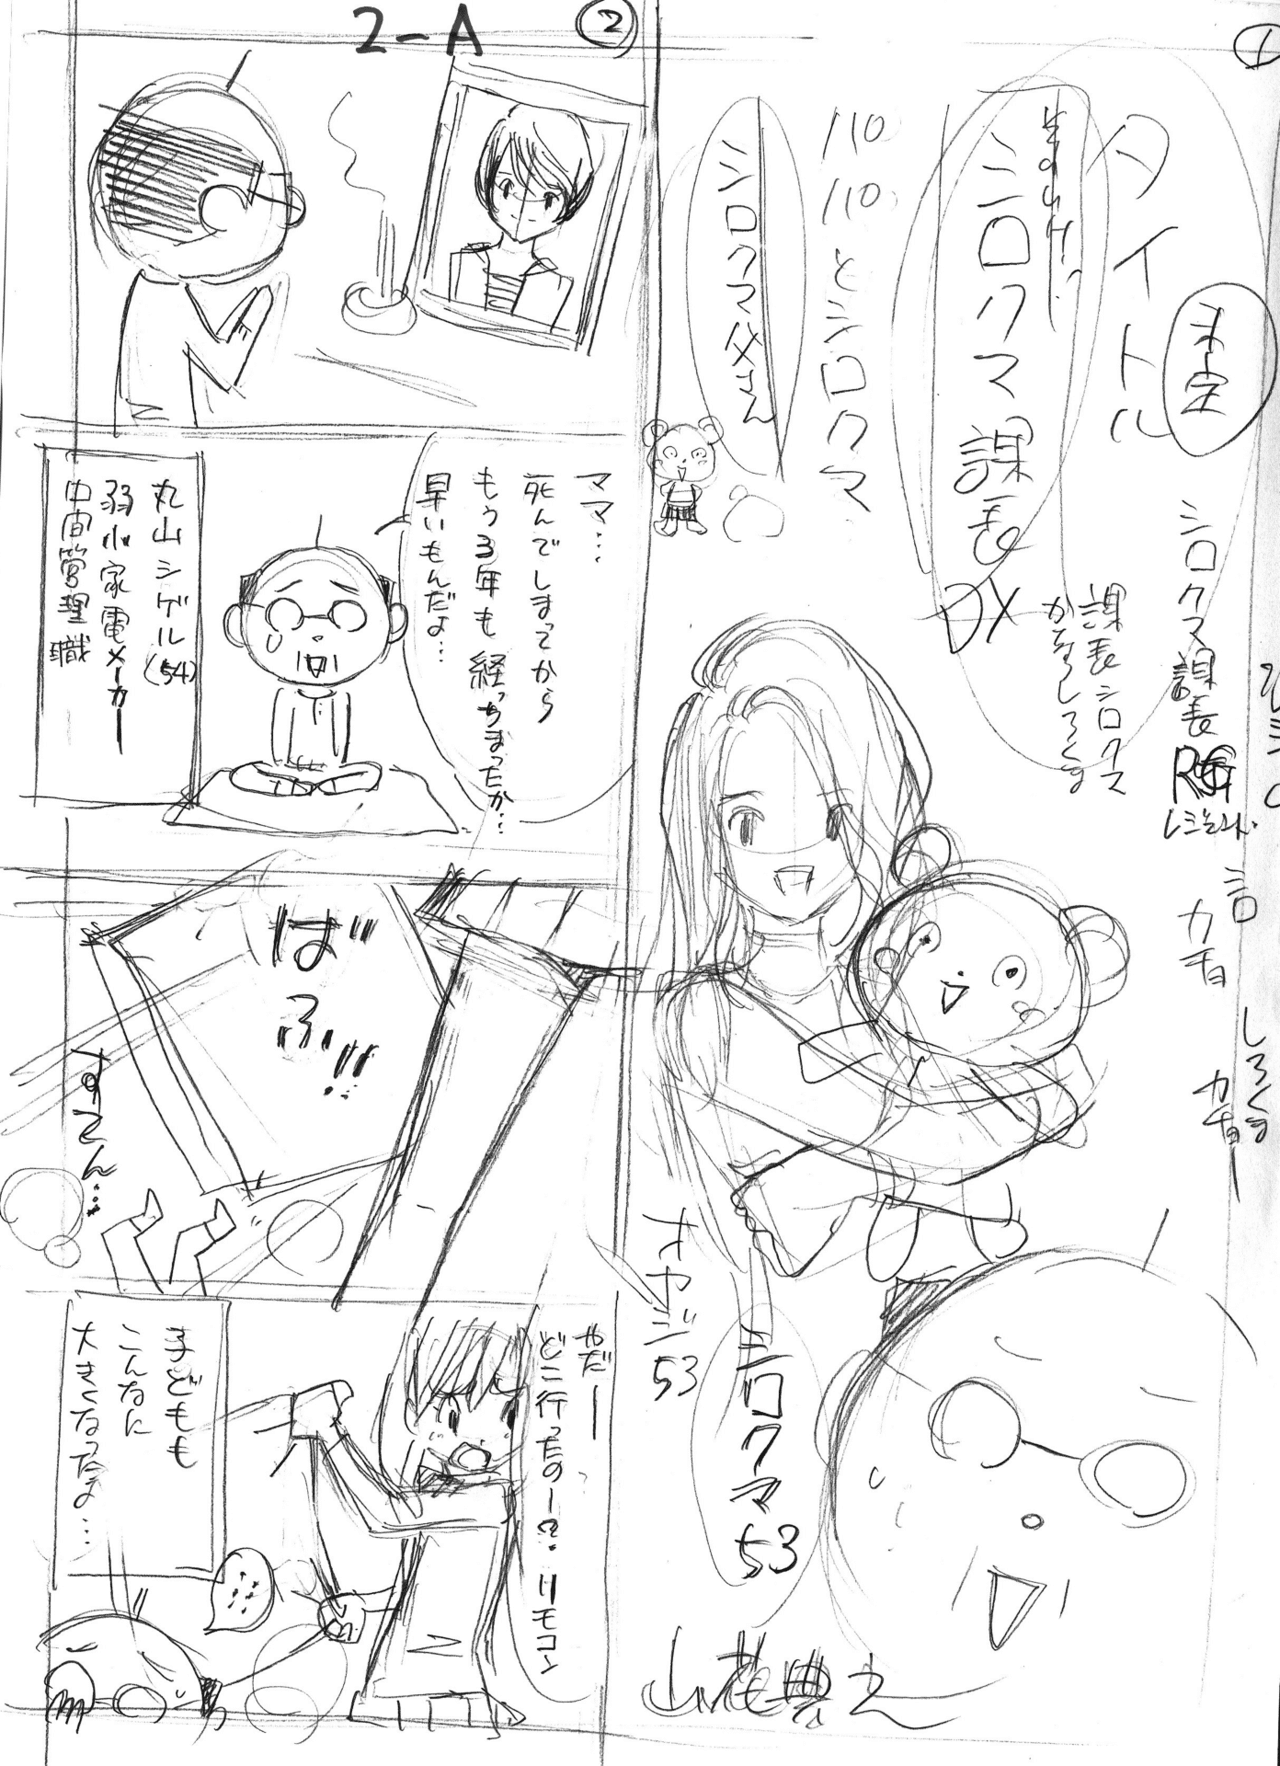 ①
タイトル
未定
シロクマ課長
DX
課長シロクマ
かちょうしろくま
シロクマ課長
シロ
カチョ
しろくま
カチョー
パパ
パパとシロクマ
シロクマ父さん
オヤジ53
シロクマ53
山花典之
②
2-A
ママ…
死んでしまってから
もう3年も経っちまったか…
早いもんだよ…
丸山シゲル(54)
弱小家電メーカー
中間管理職
ばふ!!
すてん…
やだー
どこ行ったのー?リモコン
子どもも
こんなに
大きくなったよ…